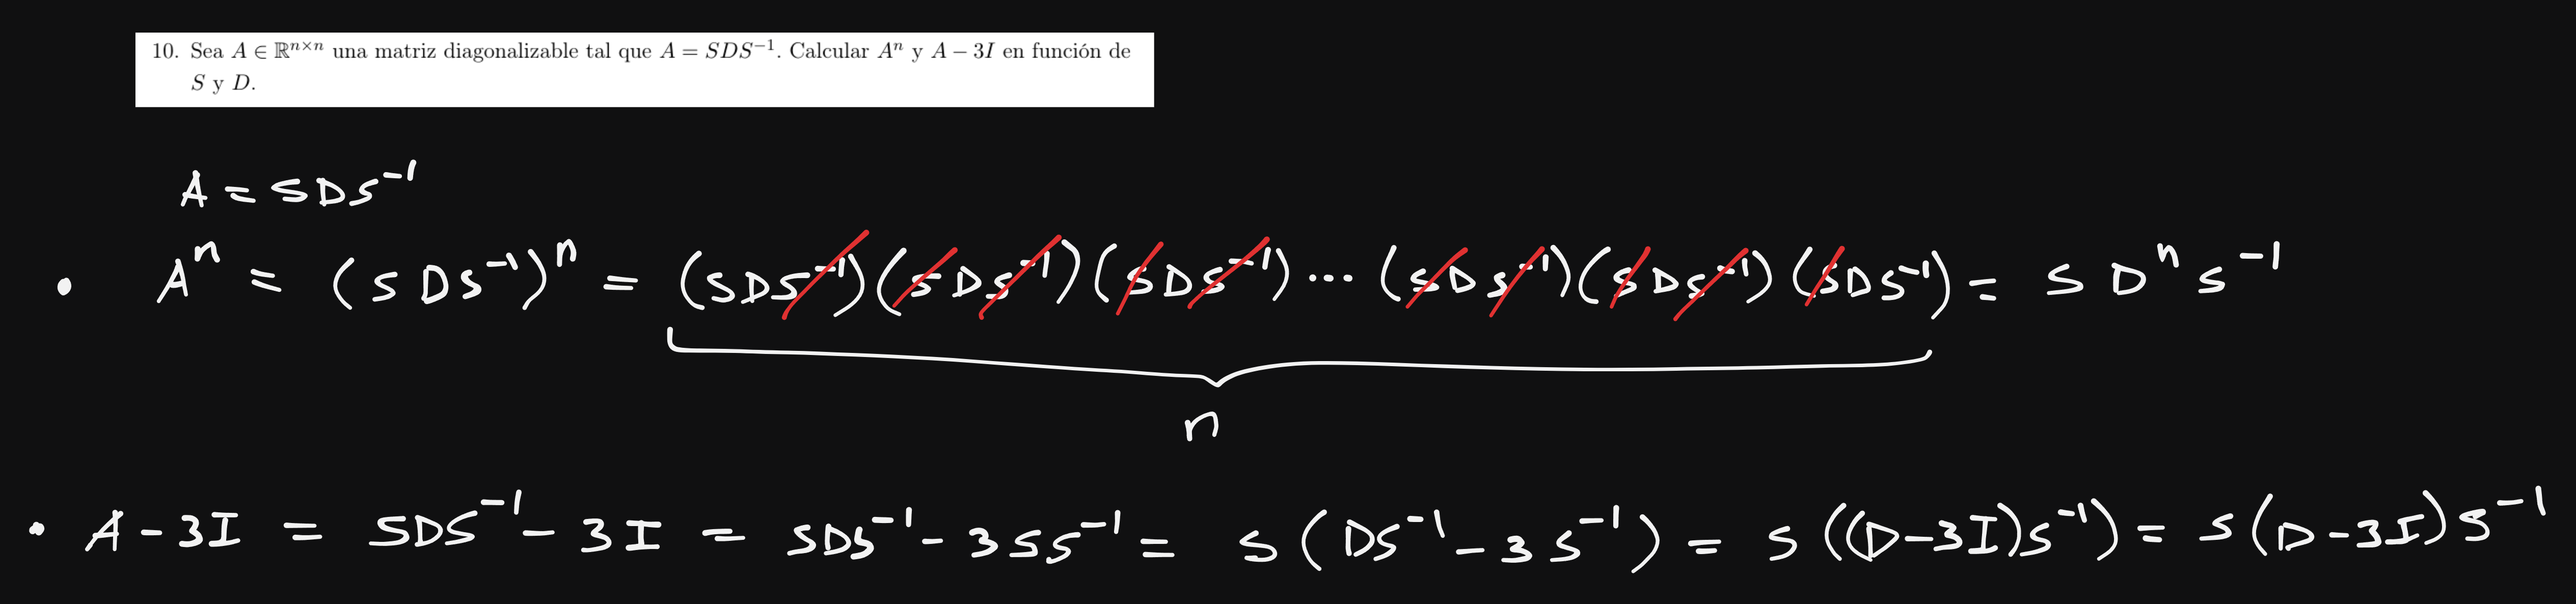 10. Sea A ∈ ℝⁿˣⁿ una matriz diagonalizable tal que A = SDS⁻¹. Calcular Aⁿ y A − 3I en función de
S y D.
A = SDS⁻¹
• Aⁿ = (SDS⁻¹)ⁿ = (SDS⁻¹)(SDS⁻¹)(SDS⁻¹)...(SDS⁻¹)(SDS⁻¹)(SDS⁻¹) = S Dⁿ S⁻¹
n
• A − 3I = SDS⁻¹ − 3I = SDS⁻¹ − 3SS⁻¹ = S(DS⁻¹ − 3S⁻¹) = S((D−3I)S⁻¹) = S(D−3I)S⁻¹